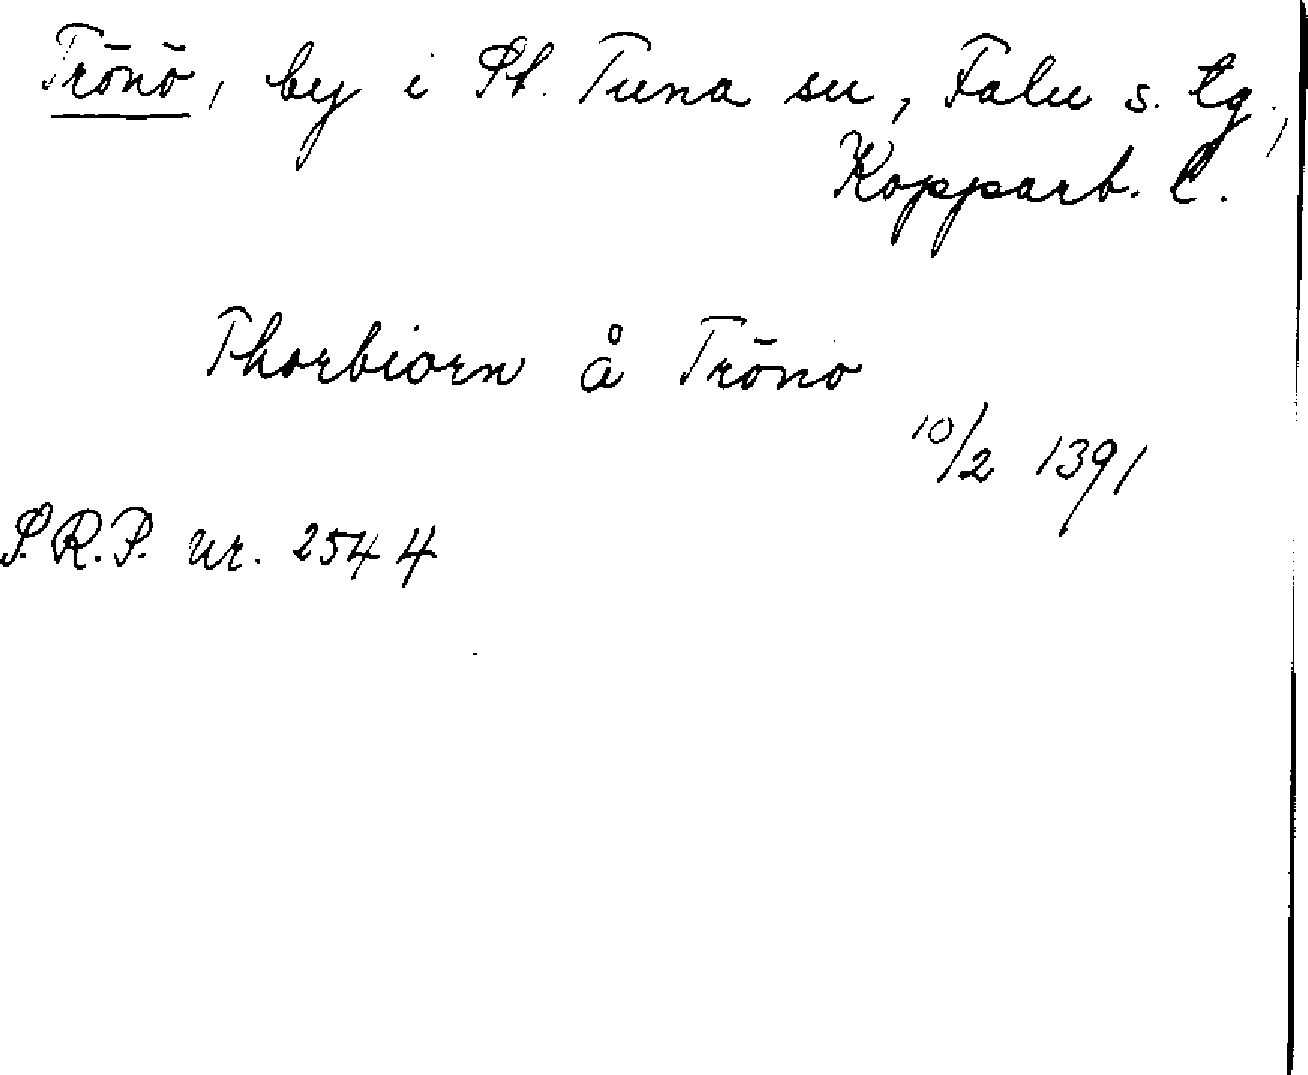 Trönö, by i St. Tuna sn, Falu s. tg,
Kopparb. l.
Thorbiorn å Trōno
10/2 1391
S.R.P. nr. 2544